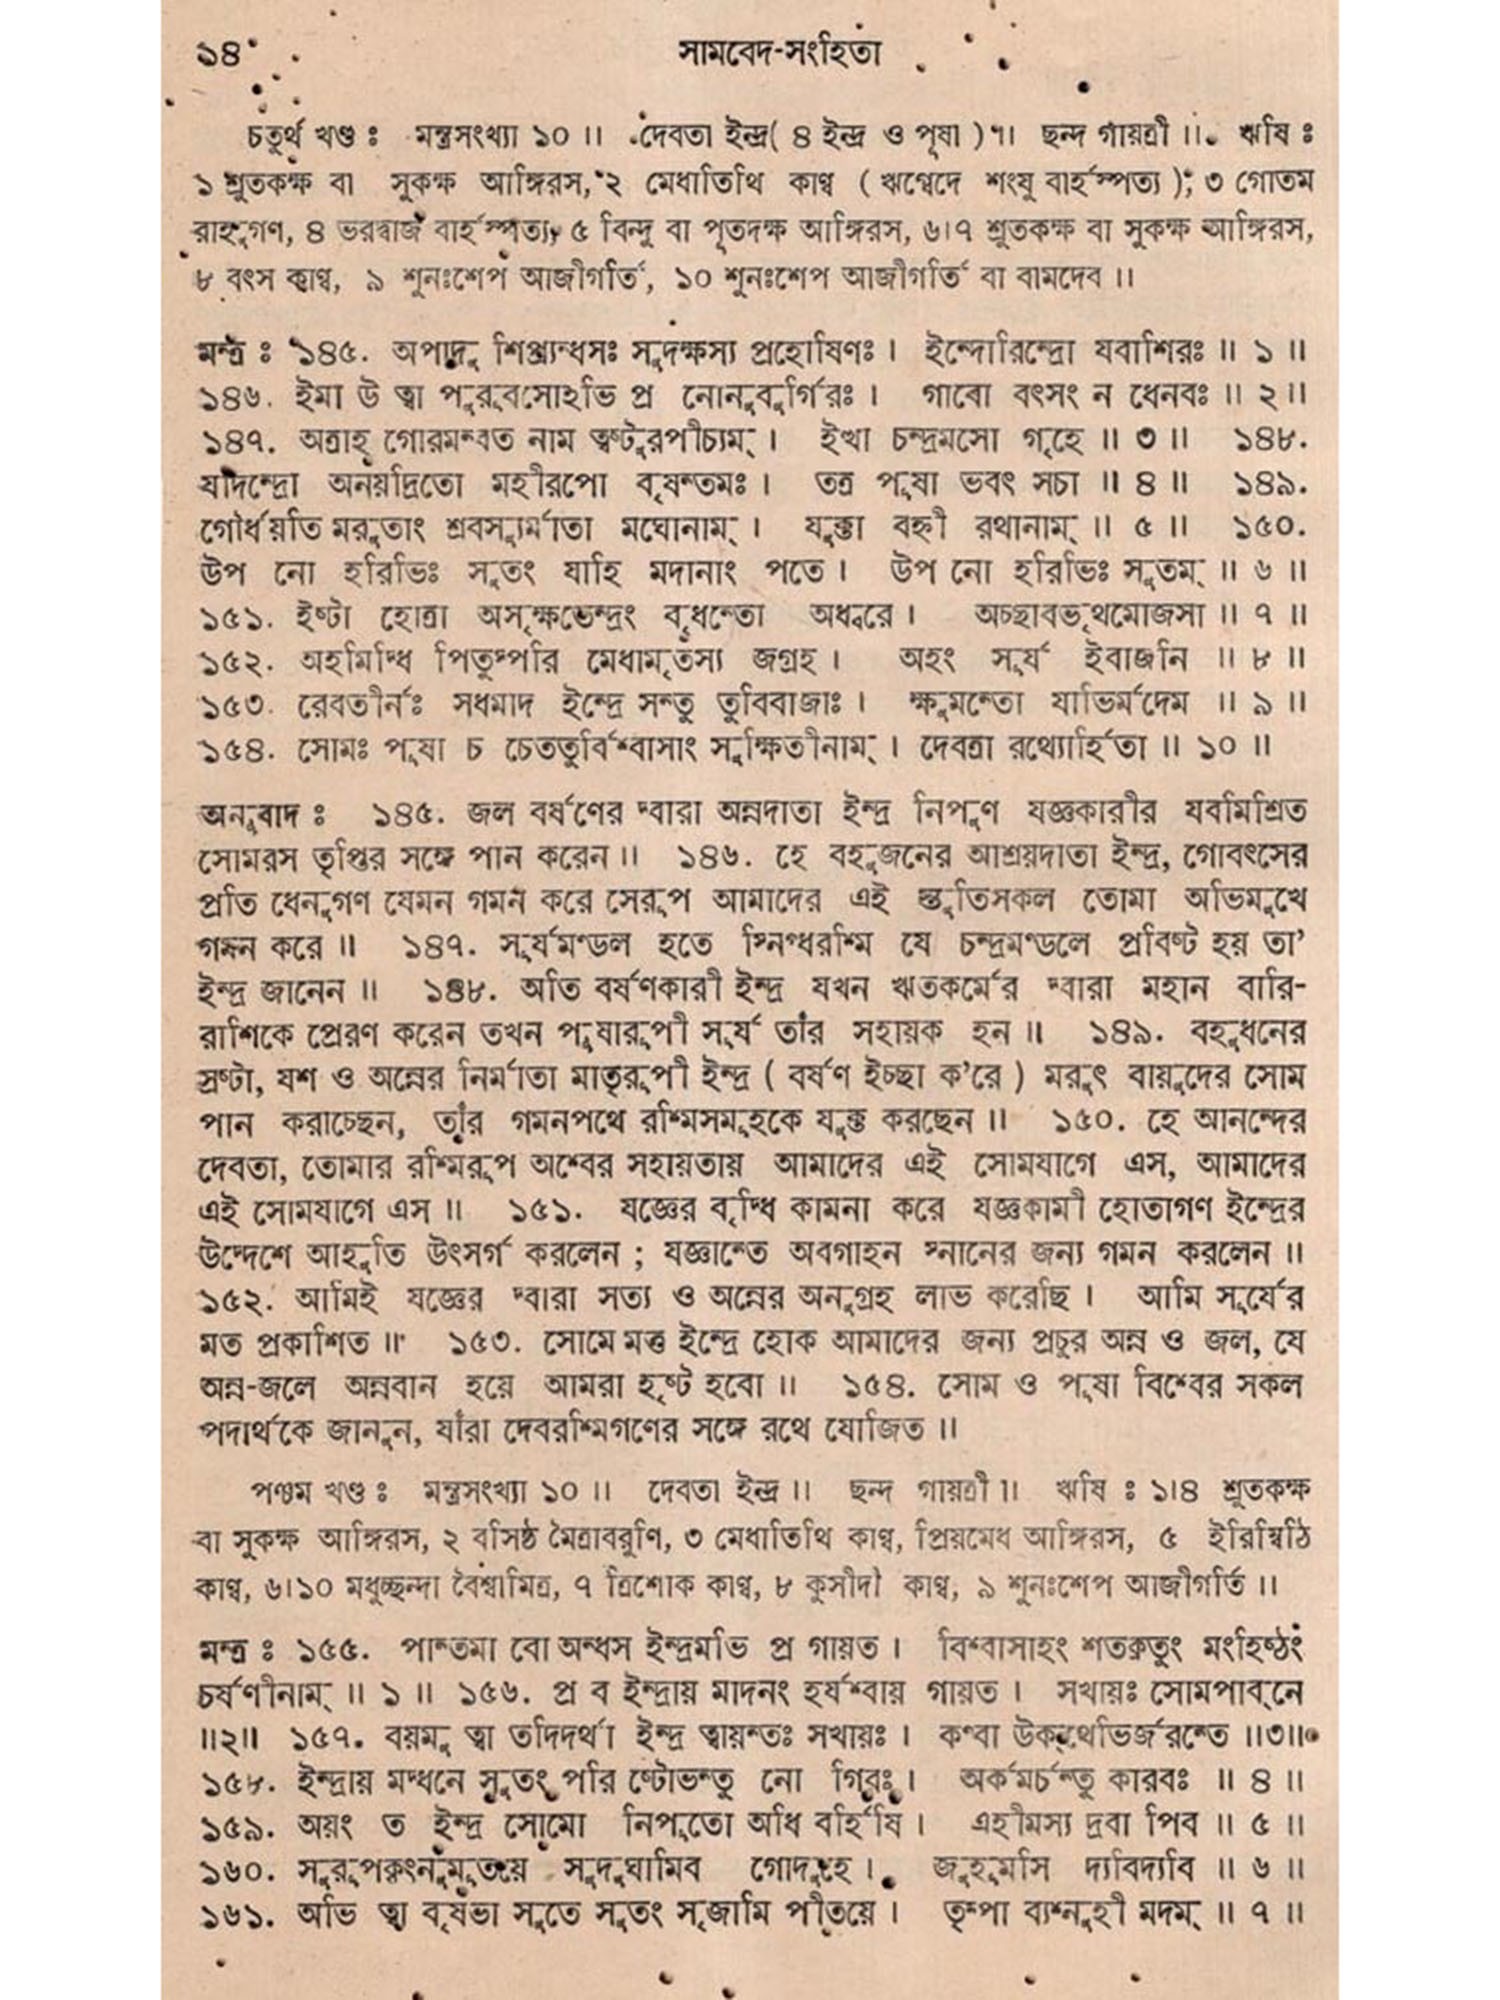 ১৪
সামবেদ-সংহিতা
চতুর্থ খণ্ড ঃ মন্ত্রসংখ্যা ১০ ॥ দেবতা ইন্দ্র( ৪ ইন্দ্র ও পূষা ) ॥ ছন্দ গায়ত্রী ॥ ঋষি ঃ
১ শ্রুতকক্ষ বা সুকক্ষ আঙ্গিরস, ২ মেধাতিথি কাণ্ব ( ঋগ্বেদে শংযু বার্হস্পত্য ), ৩ গোতম
রাহূগণ, ৪ ভরদ্বাজ বার্হস্পত্য, ৫ বিন্দু বা পূতদক্ষ আঙ্গিরস, ৬।৭ শ্রুতকক্ষ বা সুকক্ষ আঙ্গিরস,
৮ বৎস কাণ্ব, ৯ শুনঃশেপ আজীগর্তি, ১০ শুনঃশেপ আজীগর্তি বা বামদেব ॥
মন্ত্র ঃ ১৪৫. অপাদু শিপ্র্যন্ধসঃ সুদক্ষস্য প্রহোষিণঃ । ইন্দোরিন্দ্রো যবাশিরঃ ॥ ১ ॥
১৪৬. ইমা উ ত্বা পুরূবসোঽভি প্র নোনুবুর্গিরঃ । গাবো বৎসং ন ধেনবঃ ॥ ২ ॥
১৪৭. অত্রাহ গোরমন্বত নাম ত্বষ্টুরপীচ্যম্ । ইত্থা চন্দ্রমসো গৃহে ॥ ৩ ॥ ১৪৮.
যদিন্দ্রো অনয়দ্রিতো মহীরপো বৃষন্তমঃ । তত্র পূষা ভবৎ সচা ॥ ৪ ॥ ১৪৯.
গৌর্ধয়তি মরুতাং শ্রবস্যুর্মাতা মঘোনাম্ । যুক্তা বহ্নী রথানাম্ ॥ ৫ ॥ ১৫০.
উপ নো হরিভিঃ সুতং যাহি মদানাং পতে । উপ নো হরিভিঃ সুতম্ ॥ ৬ ॥
১৫১. ইষ্টা হোত্রা অসৃক্ষতেন্দ্রং বৃধন্তো অধ্বরে । অচ্ছাবভৃথমোজসা ॥ ৭ ॥
১৫২. অহমিদ্ধি পিতুষ্পরি মেধামৃতস্য জগ্রহ । অহং সূর্য ইবাজনি ॥ ৮ ॥
১৫৩. রেবতীর্নঃ সধমাদ ইন্দ্রে সন্তু তুবিবাজাঃ । ক্ষুমন্তো যাভির্মদেম ॥ ৯ ॥
১৫৪. সোমঃ পূষা চ চেততুর্বিশ্বাসাং সুক্ষিতীনাম্ । দেবত্রা রথ্যোর্হিতা ॥ ১০ ॥
অনুবাদ ঃ ১৪৫. জল বর্ষণের দ্বারা অন্নদাতা ইন্দ্র নিপুণ যজ্ঞকারীর যবমিশ্রিত
সোমরস তৃপ্তির সঙ্গে পান করেন ॥ ১৪৬. হে বহুজনের আশ্রয়দাতা ইন্দ্র, গোবৎসের
প্রতি ধেনুগণ যেমন গমন করে সেরূপ আমাদের এই স্তুতিসকল তোমা অভিমুখে
গমন করে ॥ ১৪৭. সূর্যমণ্ডল হতে স্নিগ্ধরশ্মি যে চন্দ্রমণ্ডলে প্রবিষ্ট হয় তা’
ইন্দ্র জানেন ॥ ১৪৮. অতি বর্ষণকারী ইন্দ্র যখন ঋতকর্মের দ্বারা মহান বারি-
রাশিকে প্রেরণ করেন তখন পূষারূপী সূর্য তাঁর সহায়ক হন ॥ ১৪৯. বহুধনের
স্রষ্টা, যশ ও অন্নের নির্মাতা মাতৃরূপী ইন্দ্র ( বর্ষণ ইচ্ছা ক’রে ) মরুৎ বায়ুদের সোম
পান করাচ্ছেন, তাঁর গমনপথে রশ্মিসমূহকে যুক্ত করছেন ॥ ১৫০. হে আনন্দের
দেবতা, তোমার রশ্মিরূপ অশ্বের সহায়তায় আমাদের এই সোমযাগে এস, আমাদের
এই সোমযাগে এস ॥ ১৫১. যজ্ঞের বৃদ্ধি কামনা করে যজ্ঞকামী হোতাগণ ইন্দ্রের
উদ্দেশে আহুতি উৎসর্গ করলেন ; যজ্ঞান্তে অবগাহন স্নানের জন্য গমন করলেন ॥
১৫২. আমিই যজ্ঞের দ্বারা সত্য ও অন্নের অনুগ্রহ লাভ করেছি । আমি সূর্যের
মত প্রকাশিত ॥ ১৫৩. সোমে মত্ত ইন্দ্রে হোক আমাদের জন্য প্রচুর অন্ন ও জল, যে
অন্ন-জলে অন্নবান হয়ে আমরা হৃষ্ট হবো ॥ ১৫৪. সোম ও পূষা বিশ্বের সকল
পদার্থকে জানুন, যাঁরা দেবরশ্মিগণের সঙ্গে রথে যোজিত ॥
পঞ্চম খণ্ড ঃ মন্ত্রসংখ্যা ১০ ॥ দেবতা ইন্দ্র ॥ ছন্দ গায়ত্রী ॥ ঋষি ঃ ১।৪ শ্রুতকক্ষ
বা সুকক্ষ আঙ্গিরস, ২ বসিষ্ঠ মৈত্রাবরুণি, ৩ মেধাতিথি কাণ্ব, প্রিয়মেধ আঙ্গিরস, ৫ ইরিম্বিঠি
কাণ্ব, ৬।১০ মধুচ্ছন্দা বৈশ্বামিত্র, ৭ ত্রিশোক কাণ্ব, ৮ কুসীদী কাণ্ব, ৯ শুনঃশেপ আজীগর্তি ॥
মন্ত্র ঃ ১৫৫. পান্তমা বো অন্ধস ইন্দ্রমভি প্র গায়ত । বিশ্বাসাহং শতক্রতুং মংহিষ্ঠং
চর্ষণীনাম্ ॥ ১ ॥ ১৫৬. প্র ব ইন্দ্রায় মাদনং হর্যশ্বায় গায়ত । সখায়ঃ সোমপাব্‌নে
॥২॥ ১৫৭. বয়মু ত্বা তদিদর্থা ইন্দ্র ত্বায়ন্তঃ সখায়ঃ । কণ্বা উক্‌থেভির্জরন্তে ॥৩॥
১৫৮. ইন্দ্রায় মদ্ধনে সুতং পরি ষ্টোভন্তু নো গিরঃ । অর্কমর্চন্তু কারবঃ ॥ ৪ ॥
১৫৯. অয়ং ত ইন্দ্র সোমো নিপূতো অধি বর্হিষি । এহীমস্য দ্রবা পিব ॥ ৫ ॥
১৬০. সুরূপকৃৎনুমূতয়ে সুদুঘামিব গোদুহে । জুহূমসি দ্যবিদ্যবি ॥ ৬ ॥
১৬১. অভি ত্বা বৃষভা সুতে সুতং সৃজামি পীতয়ে । তৃম্পা ব্যশ্নুহী মদম্ ॥ ৭ ॥